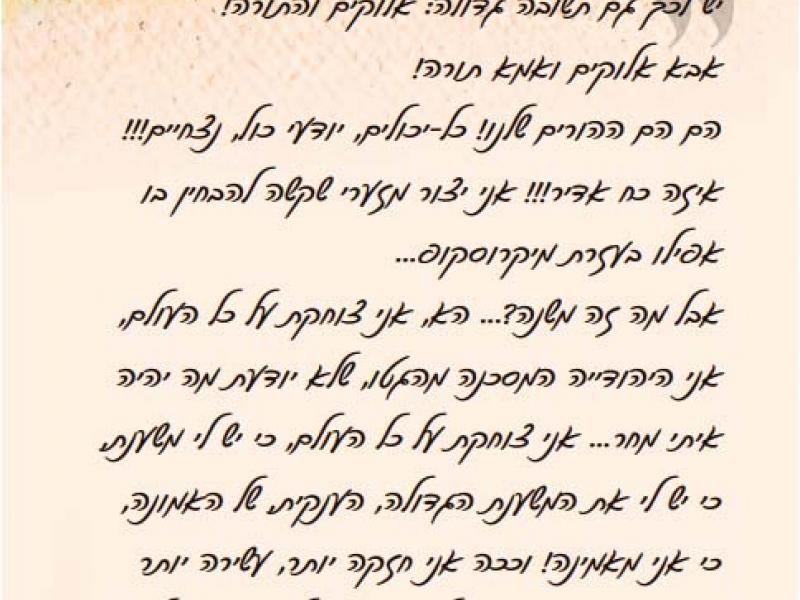 יש וכך גם תשובה גדולה: אלוקים והתורה!
אבא אלוקים ואמא תורה!
הם הם ההורים שלנו! כל-יכולים, יודעי כול, נצחיים!!!
איזה כח אדיר!!! אני יצור מזערי שקשה להבחין בו
אפילו בעזרת מיקרוסקופ...
אבל מה זה משנה?... הא, אני צוחקת על כל העולם,
אני היהודייה המסכנה מהגטו, שלא יודעת מה יהיה
איתי מחר... אני צוחקת על כל העולם, כי יש לי משענת.
כי יש לי את המשענת הגדולה, הענקית, של האמונה,
כי אני מאמינה! וככה אני חזקה יותר, עשירה יותר